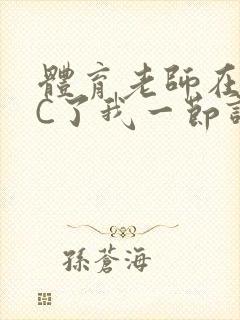 體育老師在
C了我一節
孫蒼海